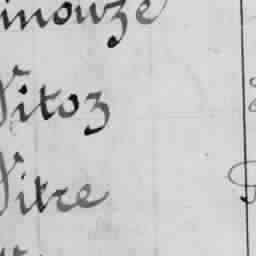 inouze
Vitoz
Vitre